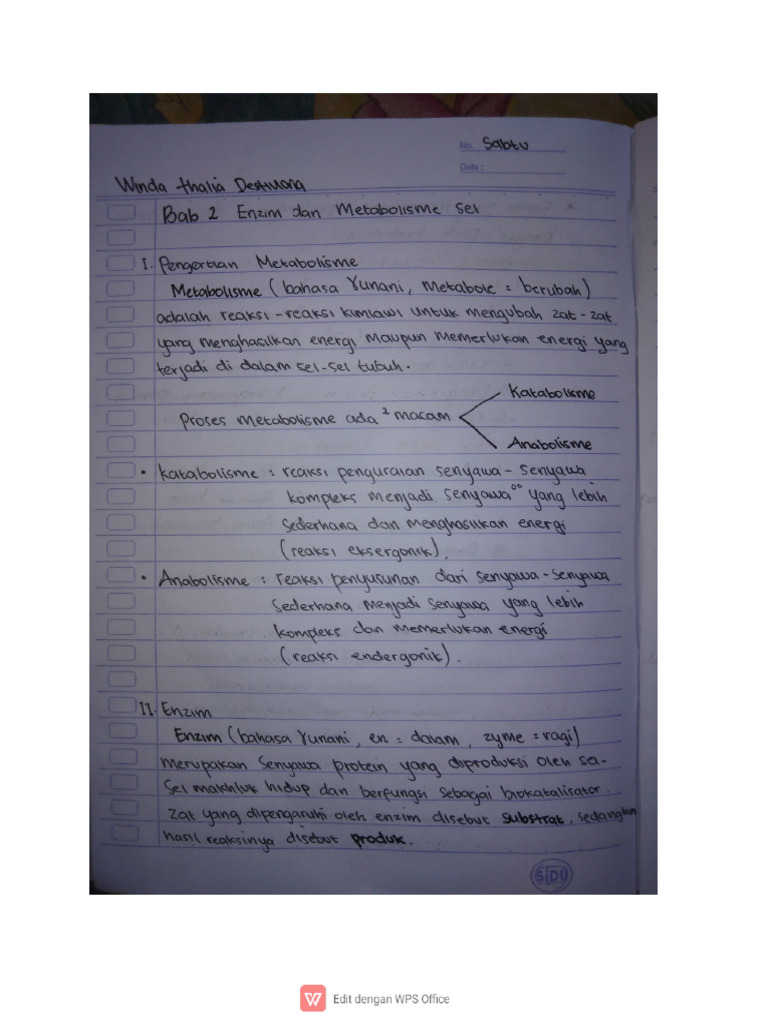 No. Sabtu
Date :
Winda thalia
Bab 2 Enzim dan Metabolisme Sel
I. Pengertian Metabolisme
Metabolisme (bahasa Yunani, Metabole = berubah)
adalah reaksi-reaksi kimiawi untuk mengubah zat-zat
yang menghasilkan energi maupun memerlukan energi yang
terjadi di dalam sel-sel tubuh.
Katabolisme
Proses metabolisme ada 2 macam
Anabolisme
• Katabolisme : reaksi penguraian senyawa-senyawa
kompleks menjadi senyawa°° yang lebih
sederhana dan menghasilkan energi
(reaksi eksergonik).
• Anabolisme : reaksi penyusunan dari senyawa-senyawa
sederhana menjadi senyawa yang lebih
kompleks dan memerlukan energi
(reaksi endergonik).
II. Enzim
Enzim (bahasa Yunani, en = dalam, zyme = ragi)
merupakan senyawa protein yang diproduksi oleh sel-
sel makhluk hidup dan berfungsi sebagai biokatalisator.
zat yang dipengaruhi oleh enzim disebut substrat, sedangkan
hasil reaksinya disebut produk.
SiDU
Edit dengan WPS Office